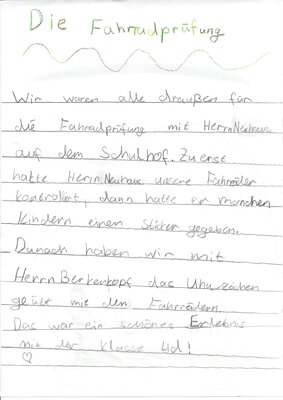 Die Fahrradprüfung
Wir waren alle draußen für
die Fahrradprüfung mit Herrn Neuhaus
auf dem Schulhof. Zuerst
hatte Herrn Neuhaus unsere Fahrräder
kontroliert, dann hatte er manchen
Kindern einen Sticker gegeben.
Danach haben wir mit
Herrn Berkenkopf das
geübt mit dem Fahrrädern.
Das war ein schönes Erlebnis
mit der Klasse 4d!